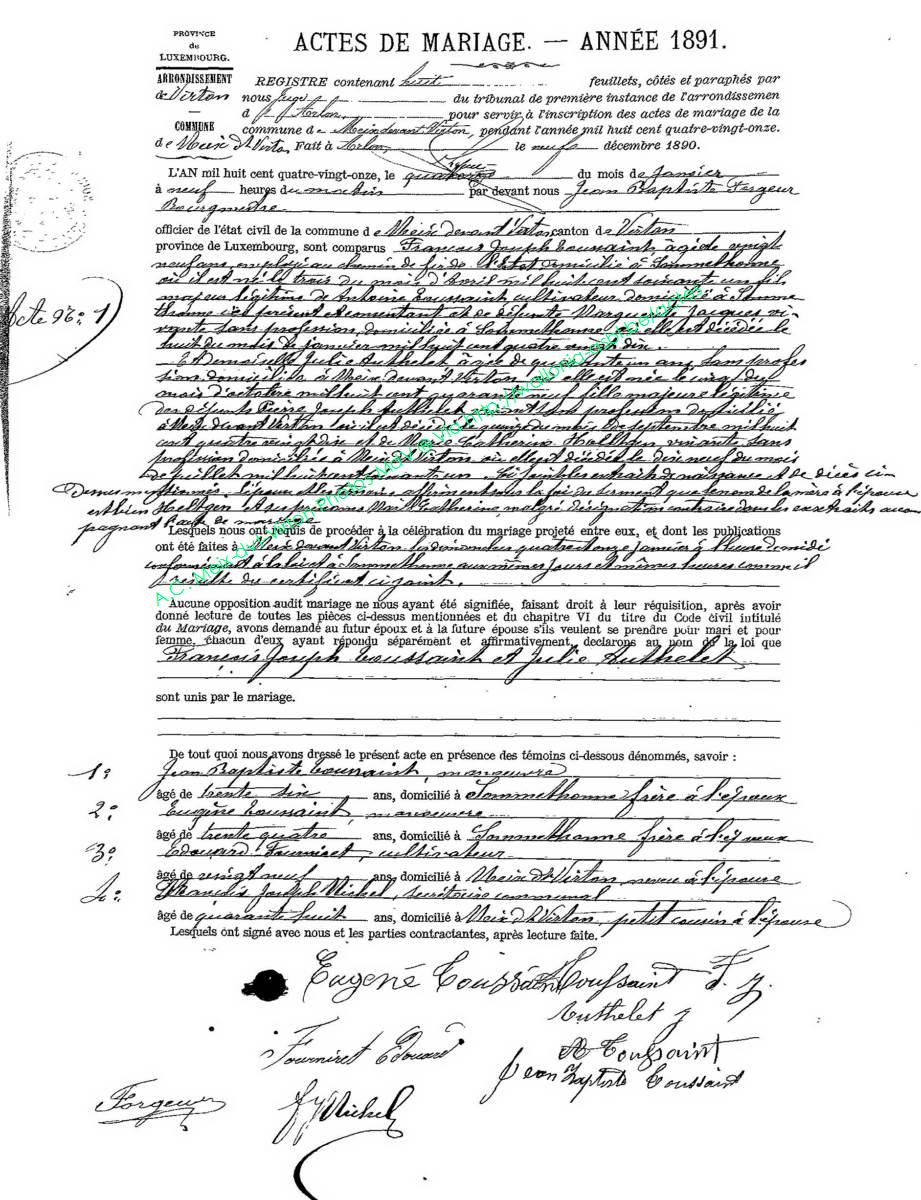 PROVINCE
de
LUXEMBOURG.
ARRONDISSEMENT
de Virton
COMMUNE
de Meix dt Virton
ACTES DE MARIAGE. — ANNÉE 1891.
REGISTRE contenant huit feuillets, côtés et paraphés par
nous Juge du tribunal de première instance de l'arrondissemen
d'Arlon, pour servir à l'inscription des actes de mariage de la
commune de Meix devant Virton, pendant l'année mil huit cent quatre-vingt-onze.
Fait à Arlon, le neuf décembre 1890.
L'AN mil huit cent quatre-vingt-onze, le quatorze du mois de Janvier
à neuf heures du matin par devant nous Jean Baptiste Forgeur
Bourgmestre
officier de l'état civil de la commune de Meix devant Virton canton de Virton
province de Luxembourg, sont comparus François Joseph Toussaint âgé de vingt
neuf ans, employé au chemin de fer de l'Etat domicilié à Sommethonne
où il est né le trois du mois d'avril mil huit cent soixante un fils
majeur légitime de Antoine Toussaint cultivateur domicilié à Somme
thonne ici présent et consentant et de défunte Marguerite Jacques vi-
vante sans profession, domiciliée à Sommethonne où elle est décédée le
huit du mois de janvier mil huit cent quatre vingt dix
Acte No. 1
Et Demoiselle Julie Authelet âgée de quarante un ans, sans profes
sion domiciliée à Meix devant Virton où elle est née le cinq du
mois d'octobre mil huit cent quarante neuf fille majeure légitime
des défunts Pierre Joseph Authelet vivant sans profession domicilié
à Meix devant Virton où il est décédé le quinze du mois de septembre mil huit
cent quatre vingt dix et de Marie Catherine Holtgen, vivante sans
profession domiciliée à Meix dt Virton où elle est décédée le dix neuf du mois
de juillet mil huit cent soixante un. Ci joint les extraits de naissance et de décès ci
dessus mentionnés. L'époux et les témoins affirment sous la foi du serment que le nom de la mère à l'épouse
est bien Hoeltgen et ses prénoms Marie Catherine, malgré désignation contraire dans les extraits accom
pagnant l'acte de mariage
Lesquels nous ont requis de procéder à la célébration du mariage projeté entre eux, et dont les publications
ont été faites à Meix devant Virton les dimanches quatre et onze janvier à l'heure de midi
conformément à la loi et à Sommethonne aux mêmes jours et mêmes heures comme il
résulte du certificat ci joint.
Aucune opposition audit mariage ne nous ayant été signifiée, faisant droit à leur réquisition, après avoir
donné lecture de toutes les pièces ci-dessus mentionnées et du chapitre VI du titre du Code civil intitulé
du Mariage, avons demandé au futur époux et à la future épouse s'ils veulent se prendre pour mari et pour
femme, chacun d'eux ayant répondu séparément et affirmativement, declarons au nom de la loi que
François Joseph Toussaint et Julie Authelet
sont unis par le mariage.
De tout quoi nous avons dressé le présent acte en présence des témoins ci-dessous dénommés, savoir :
1o Jean Baptiste Toussaint, manoeuvre
âgé de trente six ans, domicilié à Sommethonne frère à l'époux
2o Eugène Toussaint, manoeuvre
âgé de trente quatre ans, domicilié à Sommethonne frère à l'époux
3o Edouard Fourniret, cultivateur
âgé de vingt neuf ans, domicilié à Meix dt Virton, neveu à l'épouse
4o François Joseph Michel, secrétaire communal
âgé de quarante huit ans, domicilié à Meix dt Virton, petit cousin à l'épouse
Lesquels ont signé avec nous et les parties contractantes, après lecture faite.
Eugené Toussaint Toussaint F. J.
Authelet J
Fourniret Edouard
A Toussaint
Jean Baptiste Toussaint
Forgeur
FJ Michel